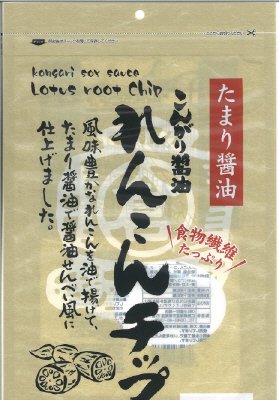 kongari soy sauce
Lotus root Chip
たまり醤油
こんがり醤油
れんこんチップ
食物繊維
たっぷり
風味豊かなれんこんを油で揚げて、
たまり醤油で醤油せんべい風に
仕上げました。